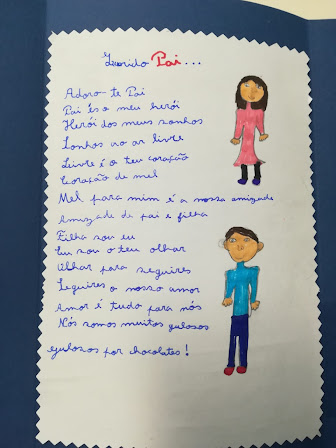 Querido Pai...
Adoro-te Pai
Pai És o meu herói
Herói dos meus sonhos
Sonhos ao ar livre
Livre é o teu coração
Coração de mel
Mel para mim é a nossa amizade
Amizade de pai e filha
Filha sou eu
Eu sou o teu olhar
Olhar para seguires
Seguires o nosso amor
Amor é tudo para nós
Nós somos muitos gulosos
gulosos por chocolates!